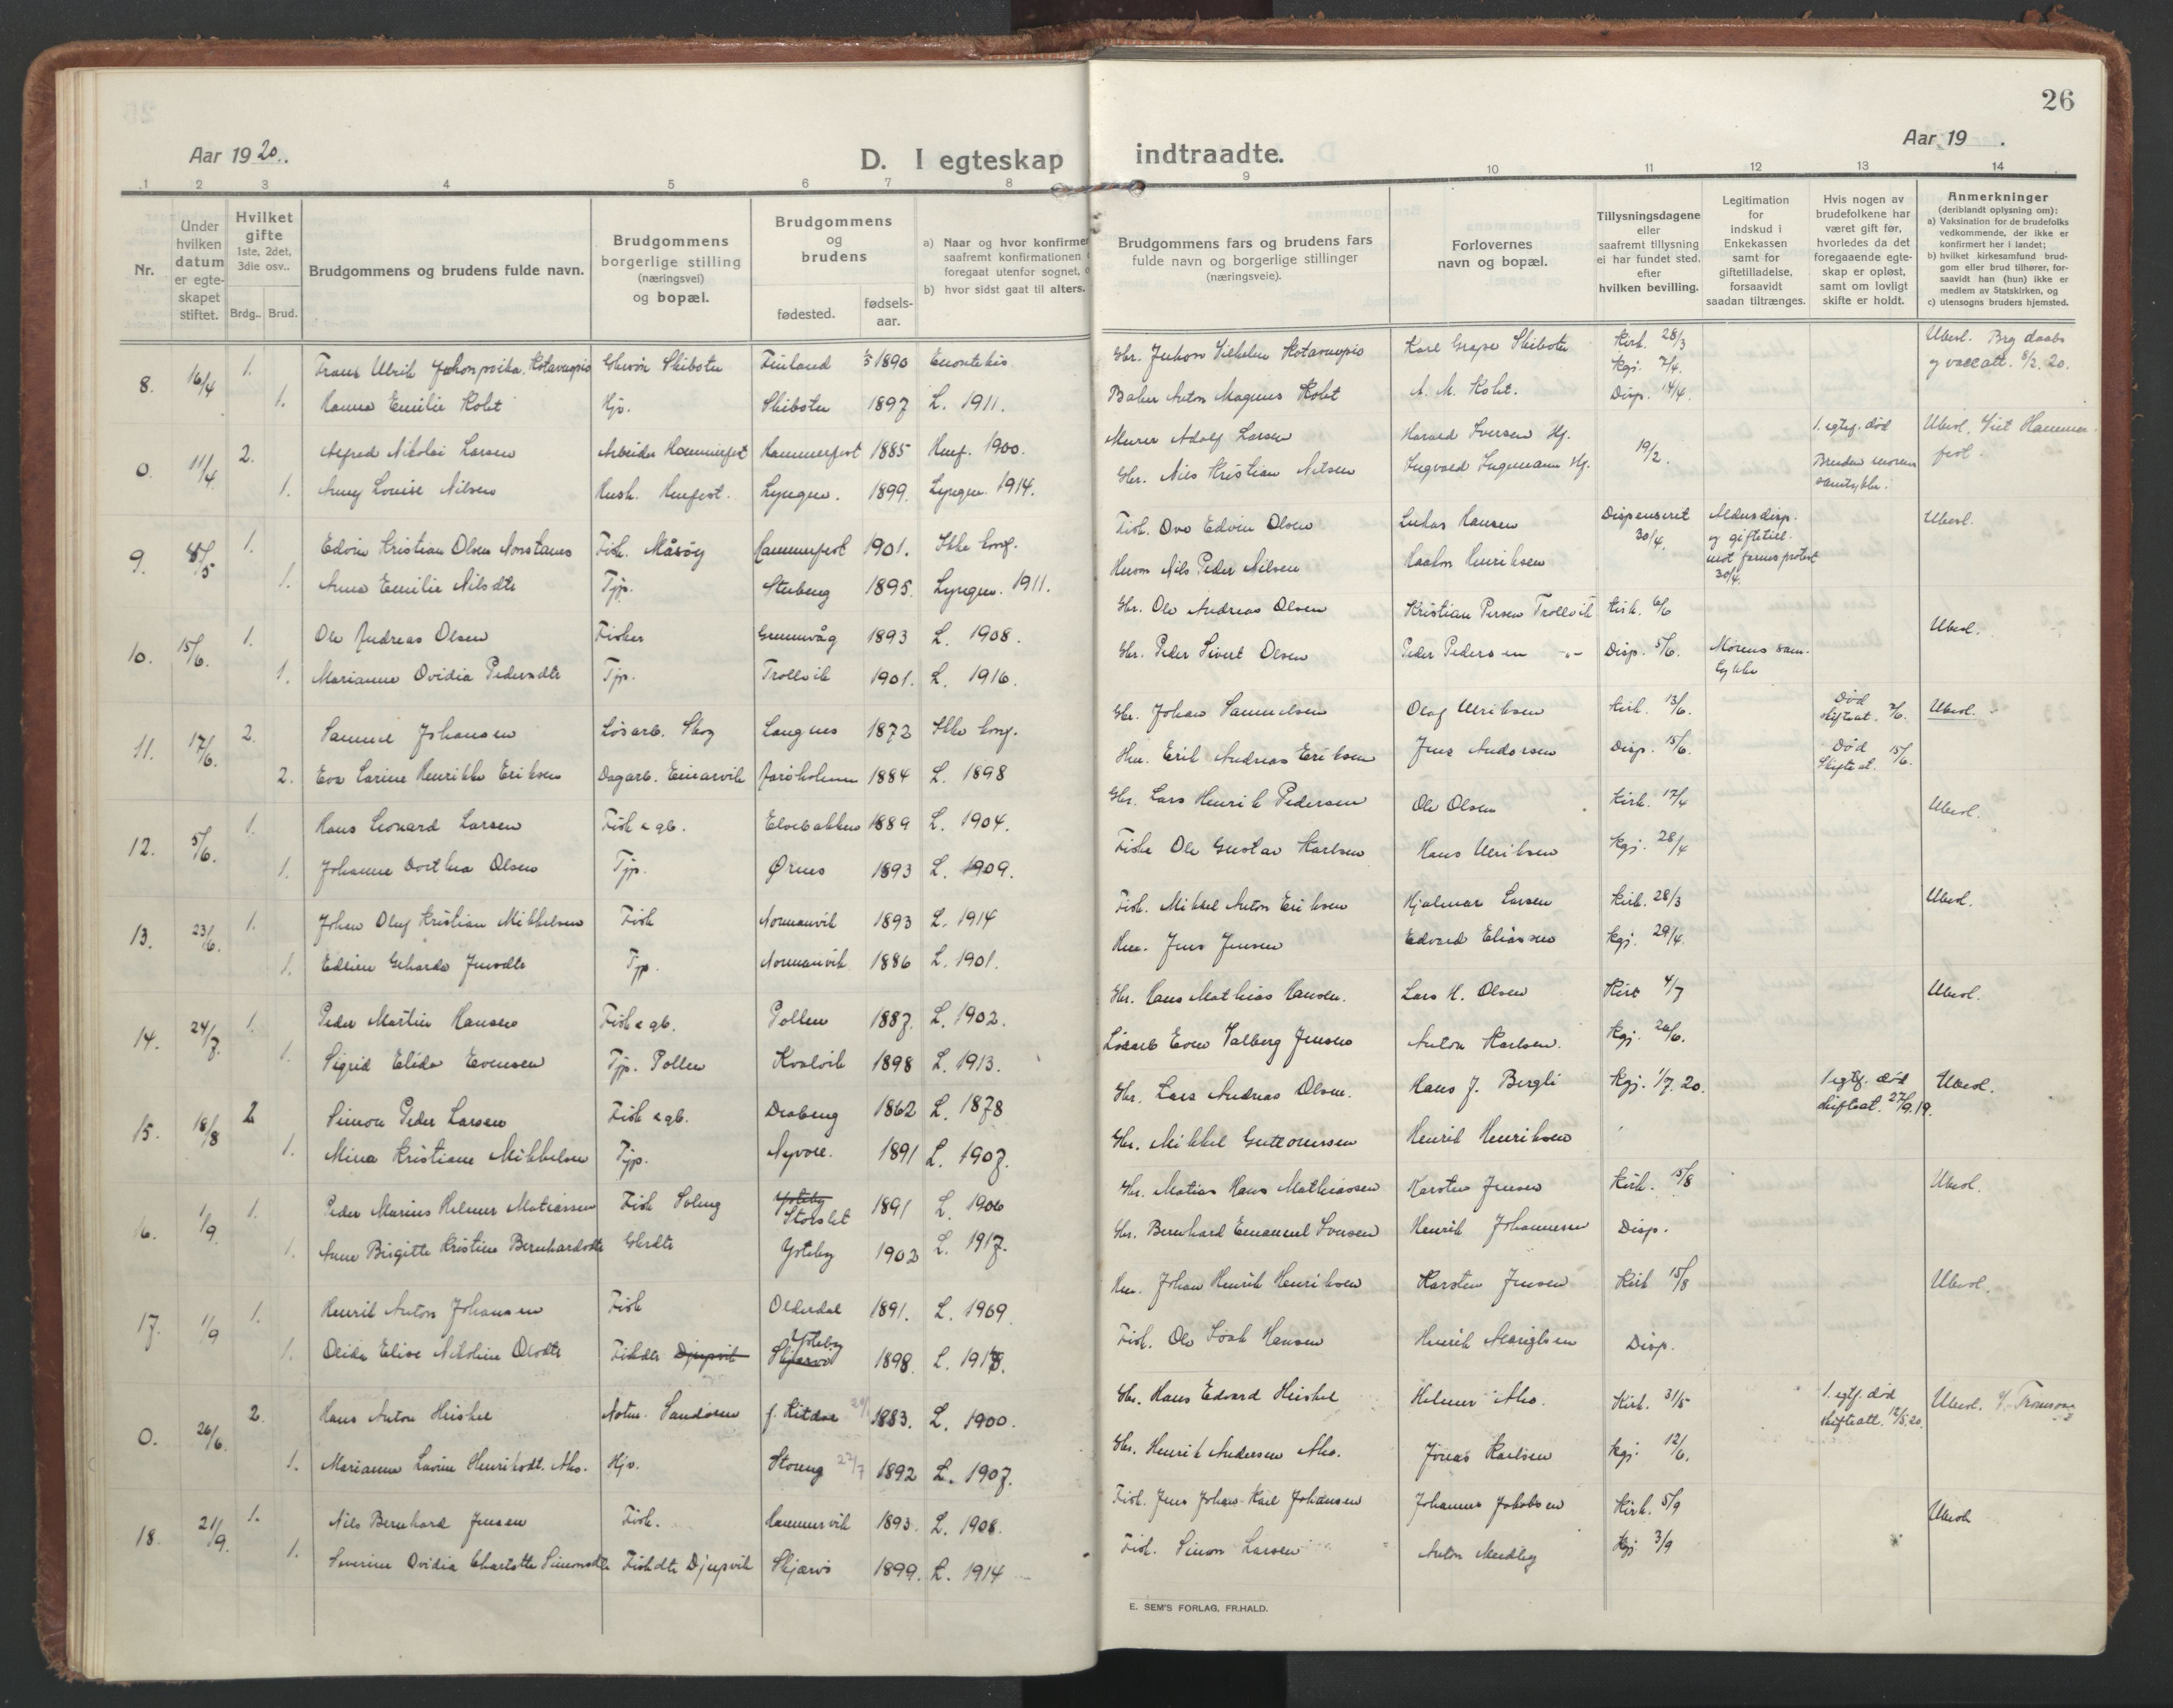 26
Aar 1920.
Aar 19 .
D. I egteskap indtraadte.
1 2 3 4 5 6 7 8 9 10 11 12 13 14
Nr.
Under hvilken datum er egteskapet stiftet.
Hvilket gifte 1ste, 2det, 3die osv..
Brdg.. Brud.
Brudgommens og brudens fulde navn.
Brudgommens borgerlige stilling (næringsvei) og bopæl.
Brudgommens og brudens
fødested.
fødsels-aar.
a) Naar og hvor konfirme
saafremt konfirmationen
foregaat utenfor sognet,
b) hvor sidst gaat til alters.
Brudgommens fars og brudens fars fulde navn og borgerlige stillinger (næringsveie).
Forlovernes navn og bopæl.
Tillysningsdagene eller saafremt tillysning ei har fundet sted. efter hvilken bevilling.
Legitimation for indskud i Enkekassen samt for giftetilladelse, forsaavidt saadan tiltrænges.
Hvis nogen av brudefolkene har været gift før, hvorledes da det foregaaende egteskap er opløst, samt om lovligt skifte er holdt.
Anmerkninger
(deriblandt oplysning om):
a) Vaksination for de brudefolks vedkommende, der ikke er konfirmert her i landet;
b) hvilket kirkesamfund brudgom eller brud tilhører, forsaavidt han (hun) ikke er medlem av Statskirken, og
c) utensogns bruders hjemsted.
8. 16/4 1. Frans Ulrik Skibotn Finland 1890 Enontekis Karl Skibotn Kirk. 28/3 Kgj. 7/4. Ubesl. Brg daabs og vacc att. 8/2. 20.
1. Hanna Emilie Kolst Hjv. Skibotn 1897 L. 1911. Baker Anton Magnus Kolst A. M. Kolst. Disp. 14/4.
0. 11/4 2. Alfred Nikolai Larsen Arbeider Hammerfest Hammerfest 1885 Hmf. 1900. Murer Adolf Larsen Harald Iversen Hf. 19/2. 1. egtef. død Ubesl. Viet Hammerfest.
1. Anny Louise Nilsen Hush. Lyngen. 1899. Lyngen. 1914. Gbr. Nils Kristian Nilsen Ingvald Ingemann Hf. Bruden morens samtykke.
9. 8/5 1. Edvin Kristian Olsen Fisk. Måsöy Hammerfest 1901. Ikke konf. Fisk. Ove Edvin Olsen Lukas Hansen Dispenseret 30/4. Aldersdisp. og giftetill. mot farens protest 30/4. Ubesl.
1. Anna Emilie Nilsdtr Tjp. Stubeng 1895. Lyngen. 1911. Nils Peder Nilsen Haakon Henriksen
10. 15/6. 1. Ole Andreas Olsen Fisker Grunnvåg 1893 L. 1908. Gbr. Ole Andreas Olsen Kristian Persen Trollvik Kirk. 6/6 Ubesl.
1. Marianne Ovidia Pedersdtr Tjp. Trollvik 1901. L. 1916. Gbr. Peder Sivert Olsen Peder Pedersen -"- Disp. 5/6. Morens samtykke
11. 17/6. 2. Samuel Johansen Løsarb. Skog Langnes 1872 Ikke konf. Gbr. Johan Samuelsen Olaf Ulriksen Kirk. 13/6. Død skifteat. 7/6. Ubesl.
2. Eva Karine Henrikke Eriksen Dagarb. Einarvik 1884 L. 1898 Hm. Erik Andreas Eriksen Jens Andersen Disp. 15/6. Død Skifteat. 15/6.
12. 5/6. 1. Hans Leonard Larsen Fisk & gb. Elvebakken 1889 L. 1904. Gbr. Lars Henrik Pedersen Ole Olsen Kirk. 17/4 Ubesl.
1. Johanne Dorthea Olsen Tjp. Ørnes 1893 L. 1909. Fiske Ole Gustav Karlsen Hans Ulriksen Kgj. 28/4
13. 23/6. 1. Johan Oluf Kristian Mikkelsen Fisk Normanvik 1893 L. 1914 Fisk. Mikkel Anton Eriksen Hjalmar Larsen Kirk. 28/3 Ubesl.
1. Edline Gerharda Jensdtr Tjp. Normanvik 1886 L. 1901. Hm. Jens Jensen Edvard Eliassen Kgj. 29/4.
14. 24/7. 1. Peder Martin Hansen Fisk & gb. Pollen 1887. L. 1902. Gbr. Hans Mathias Hansen. Lars H. Olsen Kirk 4/7 Ubesl.
1. Sigrid Elida Evensen Tjp. Pollen Kvalvik 1898 L. 1913. Løsarb Even Valberg Jensen Anton Karlsen. Kgj. 26/6.
15. 18/8 2 Simon Peder Larsen Fisk & gb. Drabeng 1862 L. 1878 Gbr. Lars Andreas Olsen. Hans J. Bergli Kgj. 1/7. 20. 1 egtf. død skifteat. 27/9.19. Ubesl.
1. Mina Kristiane Mikkelsen Tjp. Nyvoll. 1891 L. 1907. Gbr. Mikkel Guttormsen Henrik Henriksen
16. 1/9. 1. Peder Marius Helmer Matiassen Fisk Soleng Storslet 1891 L. 1906 Gbr. Matias Hans Mathiassen Karsten Jensen Kirk. 15/8 Ubesl.
1. Anne Birgitte Kristine Bernhardsdtr Gbrdtr Yoteby 1902 L. 1917. Gbr. Bernhard Emanuel Iversen Henrik Johannesen Disp.
17. 1/9 1. Henrik Anton Johansen Fisk Olderdal 1891. L. 1969. Hm. Johan Henrik Henriksen Karsten Jensen Kirk 15/8 Ubesl.
1. Elise Nikoline Olsdtr Fiskdtr Djupvik Yoteby Skjervø 1898. L. 1913. Fisk. Ole Isak Hansen Henrik Disp.
0. 26/6. 2. Hans Anton Heiskel Sandøren f. Kitdal 1883. L. 1900. Gbr. Hans Edvard Heiskel Helmer Aho. Kirk. 31/5 1. egtf. død skifteatt. 12/5.20. Ubesl. V. Tromsø
1. Marianne Lavine Henriksdt. Aho. Hjv. Storeng 27/7 1892 L. 1907. Gbr. Henrik Andersen Aho. Jonas Karlsen Kgj 12/6.
18. 21/9. 1. Nils Bernhard Jensen Fisk. Hammervik 1893. L. 1908. Fisk. Jens Johan Karl Johansen Johannes Jakobsen Kirk. 5/9 Ubesl
1. Severine Ovidia Charlotte Simonsdtr Fiskdtr Djupvik Skjervö 1899. L. 1914 Fisk. Simon Larsen Anton Medby Kgj 3/9
E. SEM'S FORLAG, FR.HALD.